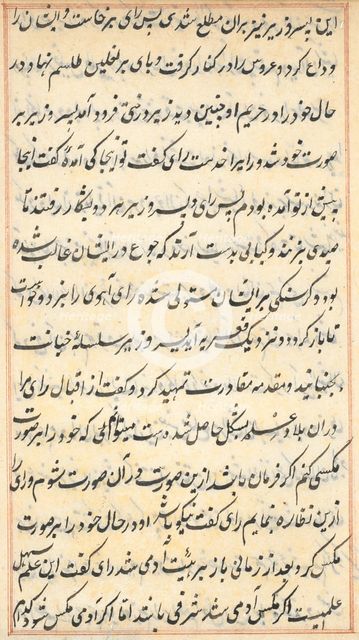 این پسر وزیر نیز بران مطلع شد پس رای برخاست و ایشان را
وداع کرد و عروس را در کنار گرفت و پای بر نعلین طلسم نهاد و در
حال خود را در حریم او چنین دید زیر درختی فرود آمد پسر وزیر بر
صورت خود شد و رای را خدمت رای گفت تو اینجا کی آمدهٔ گفت اینجا
پیش از تو آمده بودم پس رای و پسر وزیر هر دو بشکار رفتند تا
صیدی بزنند و کبابی بدست آرند که جوع در ایشان غالب شده
بود و گرسنگی بر ایشان مستولی شده رای آهوی را بزد و خواست
تا باز گردد و نزدیک قصر به آید پسر وزیر سلسلهٔ خیانت
بجنبانید و مقدمه مقادرت تمهید کرد و گفت از اقبال رای مرا
دران بلاد علمی مشکل حاصل شده است میتوانم که خود را بر صورت
مکسی کنم اگر فرمان باشد ازین صورت در آن صورت بشوم و رای را
ازین نظاره نمایم رای گفت نیکو باشد او در حال خود را بر صورت
مکس کرد و بعد از زمانی باز بر هیئت آدمی شد رای گفت این علم سهل
علمیست اگر مکس آدمی شد شرفی باشد اما اگر آدمی مکس شود کدام